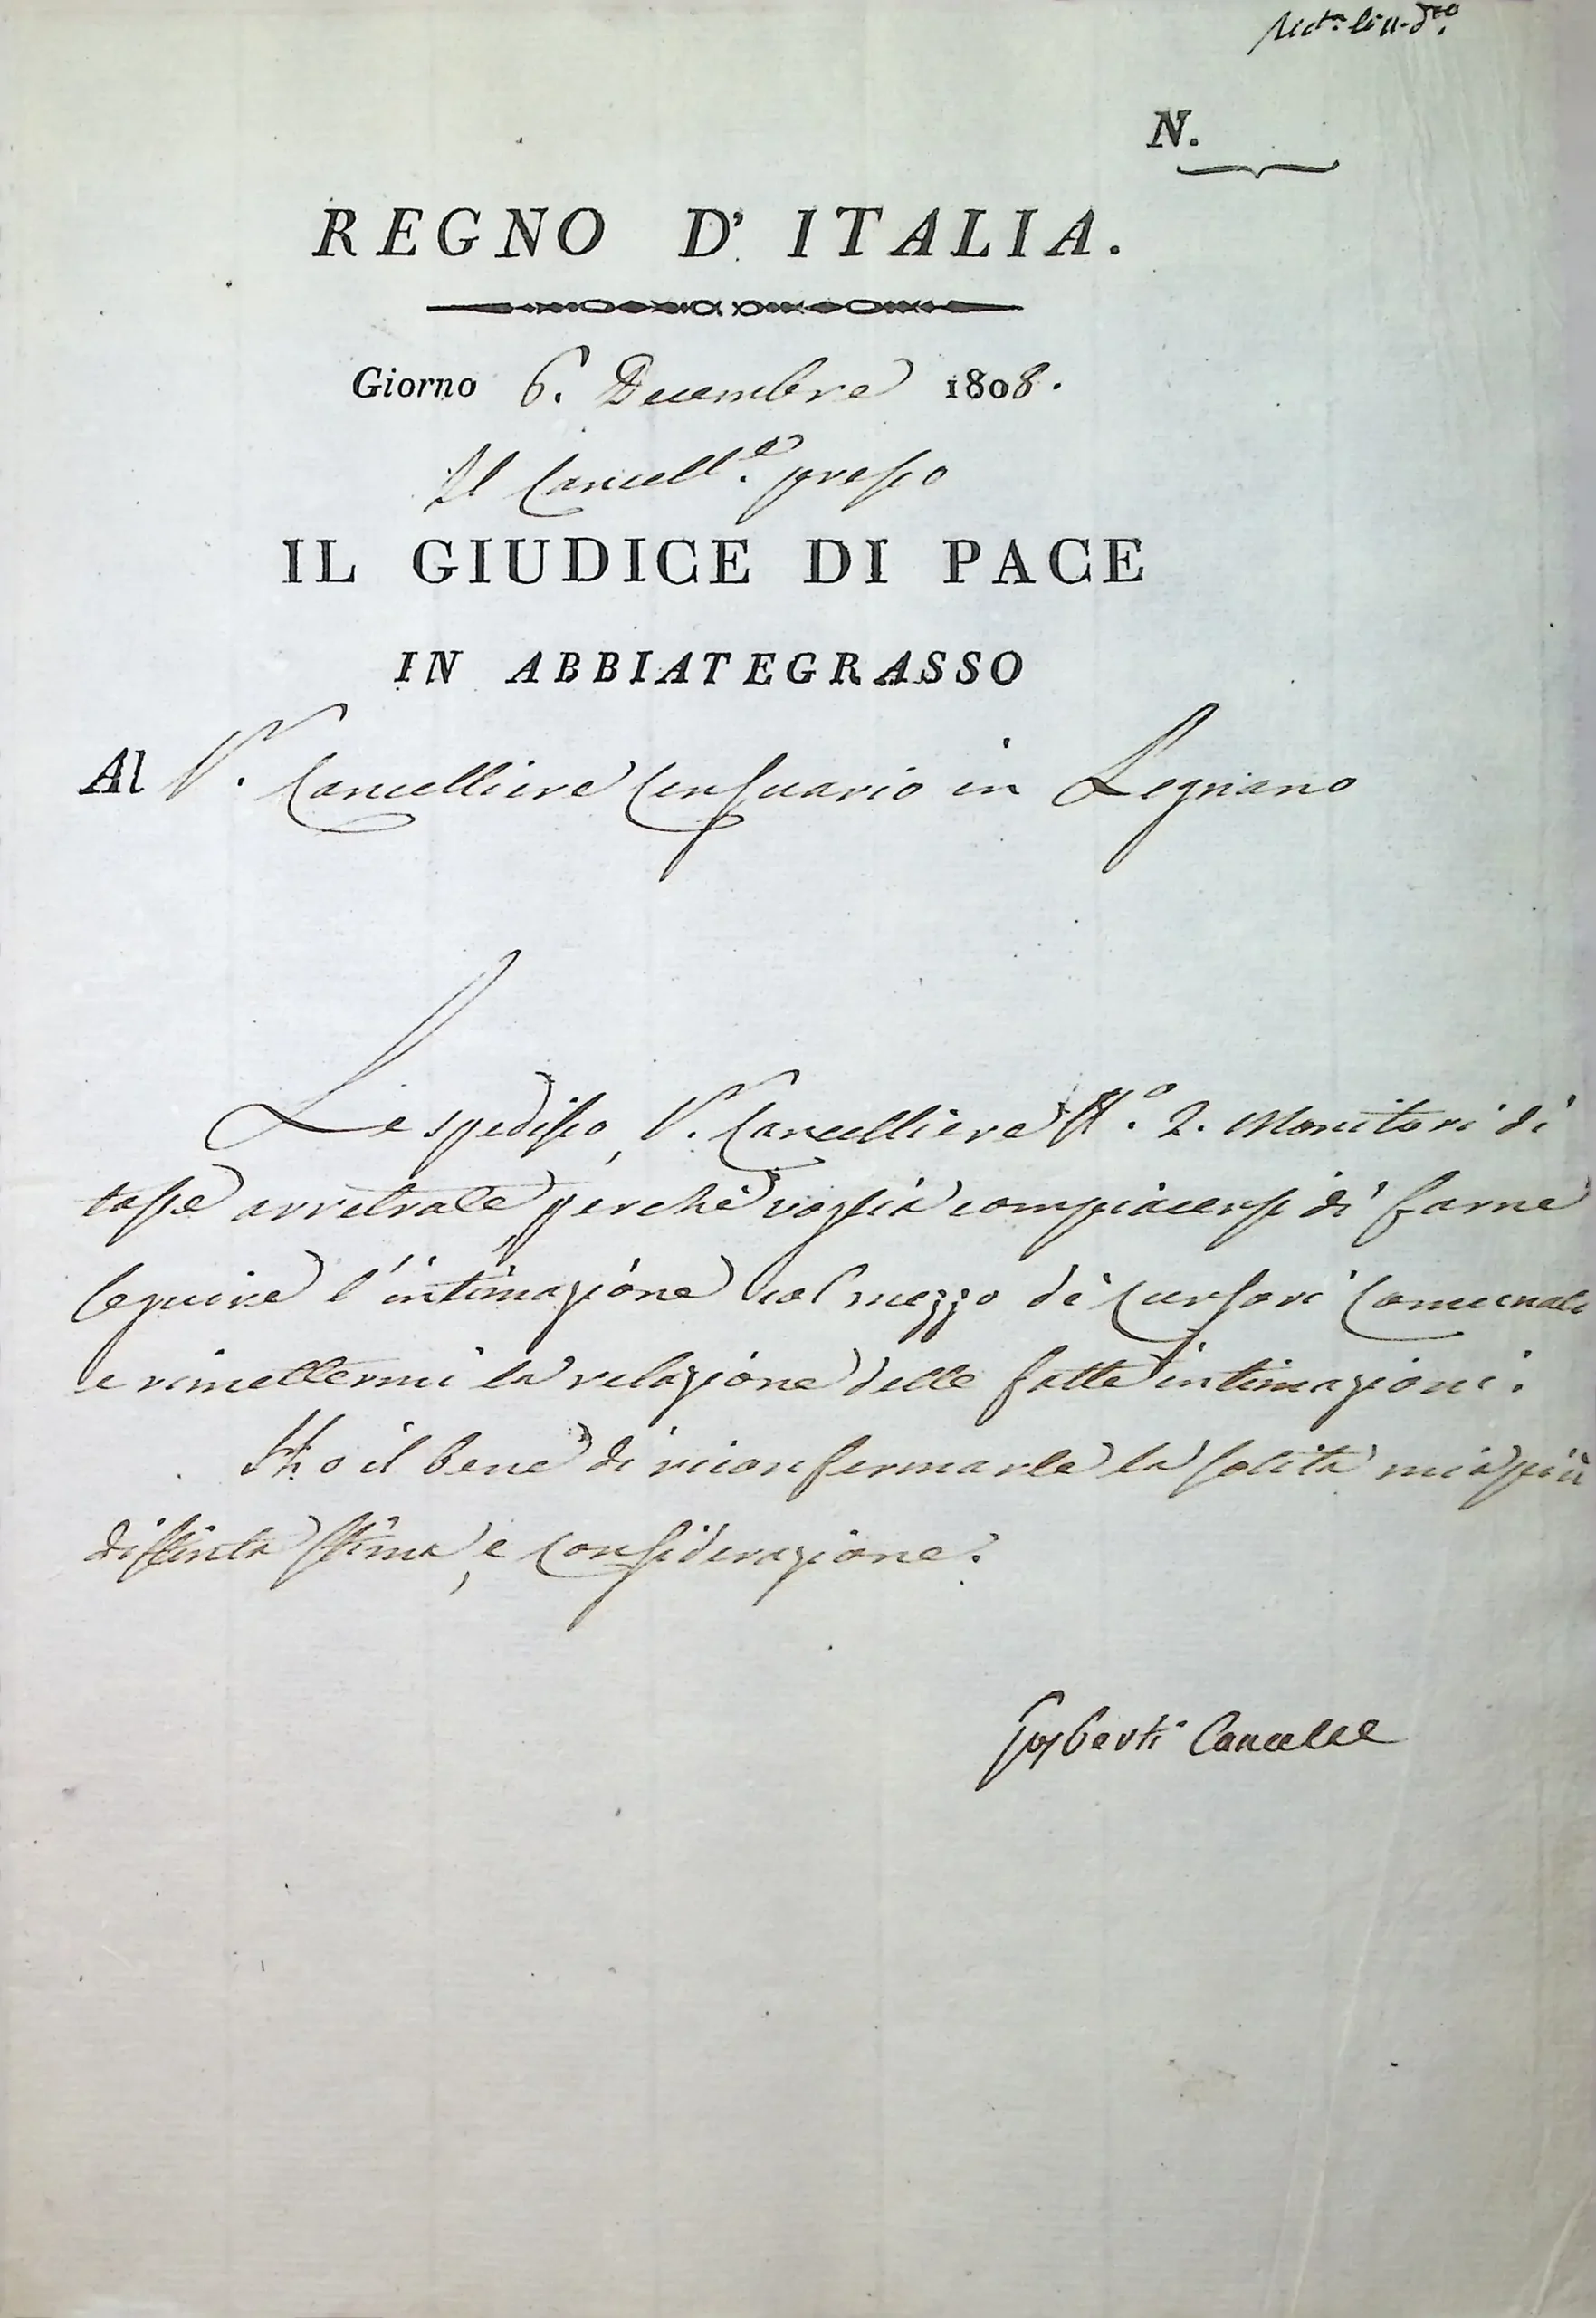 N.
REGNO D' ITALIA.
Giorno 6. Decembre 1808.
Il Cancell.e presso
IL GIUDICE DI PACE
IN ABBIATEGRASSO
Al V. Cancelliere Censuario in Legnano
Le spedisco, V. Cancelliere N.o 2. Monitori di
tasse arretrate, perchè voglia compiacersi di farne
seguire l'intimazione col mezzo di Cursori Comunali
e rimettermi la relazione delle fatte intimazioni.
Ho il bene di riconfermarle la solita mia più
distinta stima, e considerazione.
Cancell